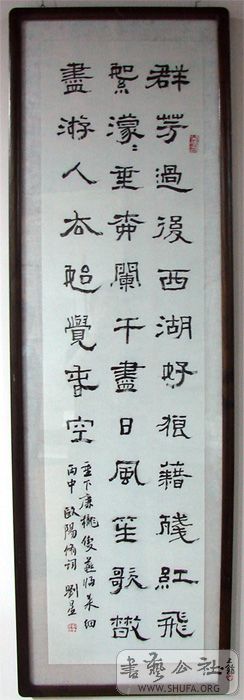 群芳過後西湖好狼藉殘紅飛
絮濛〻垂柳闌干盡日風笙歌散
盡游人去始覺春空
垂下簾櫳雙燕歸來細
雨中 歐陽脩詞 劉
書藝公社
WWW.SHUFA.ORG